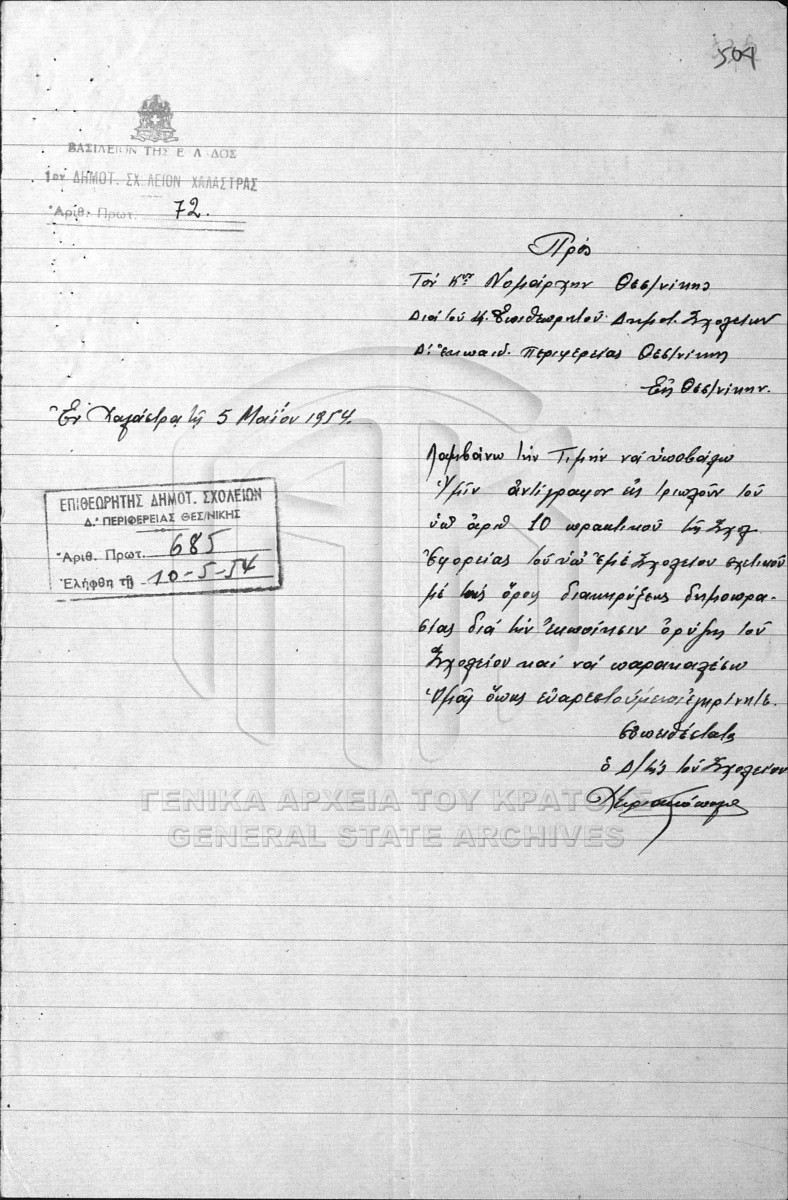 504
ΒΑΣΙΛΕΙΟΝ ΤΗΣ Ε Λ ΔΟΣ
1ον ΔΗΜΟΤ. ΣΧ ΛΕΙΟΝ ΧΑΛΑΣΤΡΑΣ
Ἀριθ. Πρωτ. 72.
Πρός
Τόν κον Νομάρχην Θεσ/νίκης
Διά τοῦ κ. Ἐπιθεωρητοῦ Δημοτ. Σχολείων
Δ! Ἐκπαιδ. Περιφερείας Θεσ/νίκης
Εἰς Θεσ/νίκην.
Ἐν Χαλάστρᾳ τῇ 5 Μαΐου 1954.
ΕΠΙΘΕΩΡΗΤΗΣ ΔΗΜΟΤ. ΣΧΟΛΕΙΩΝ
Δ.' ΠΕΡΙΦΕΡΕΙΑΣ ΘΕΣ/ΝΙΚΗΣ
Ἀριθ. Πρωτ. 685
Ἐλήφθη τῇ 10-5-54
Λαμβάνω τήν τιμήν νά ὑποβάλω
Ὑμῖν ἀντίγραφον εἰς τριπλοῦν τοῦ
ὑπ' ἀριθ 10 πρακτικοῦ τῆς Σχολ.
Ἐφορείας τοῦ ὑπ' ἐμέ Σχολείου σχετικοῦ
μέ τούς ὅρους διακηρύξεως δημοπρα-
σίας διά τήν ἐκποίησιν ὀρύζης τοῦ
Σχολείου καί νά παρακαλέσω
Ὑμᾶς ὅπως εὐαρεστούμενοι ἐγκρίνητε.
Εὐπειθέστατος
ὁ Δ/τής τοῦ Σχολείου
ΓΕΝΙΚΑ ΑΡΧΕΙΑ ΤΟΥ ΚΡΑΤΟΥΣ
GENERAL STATE ARCHIVES